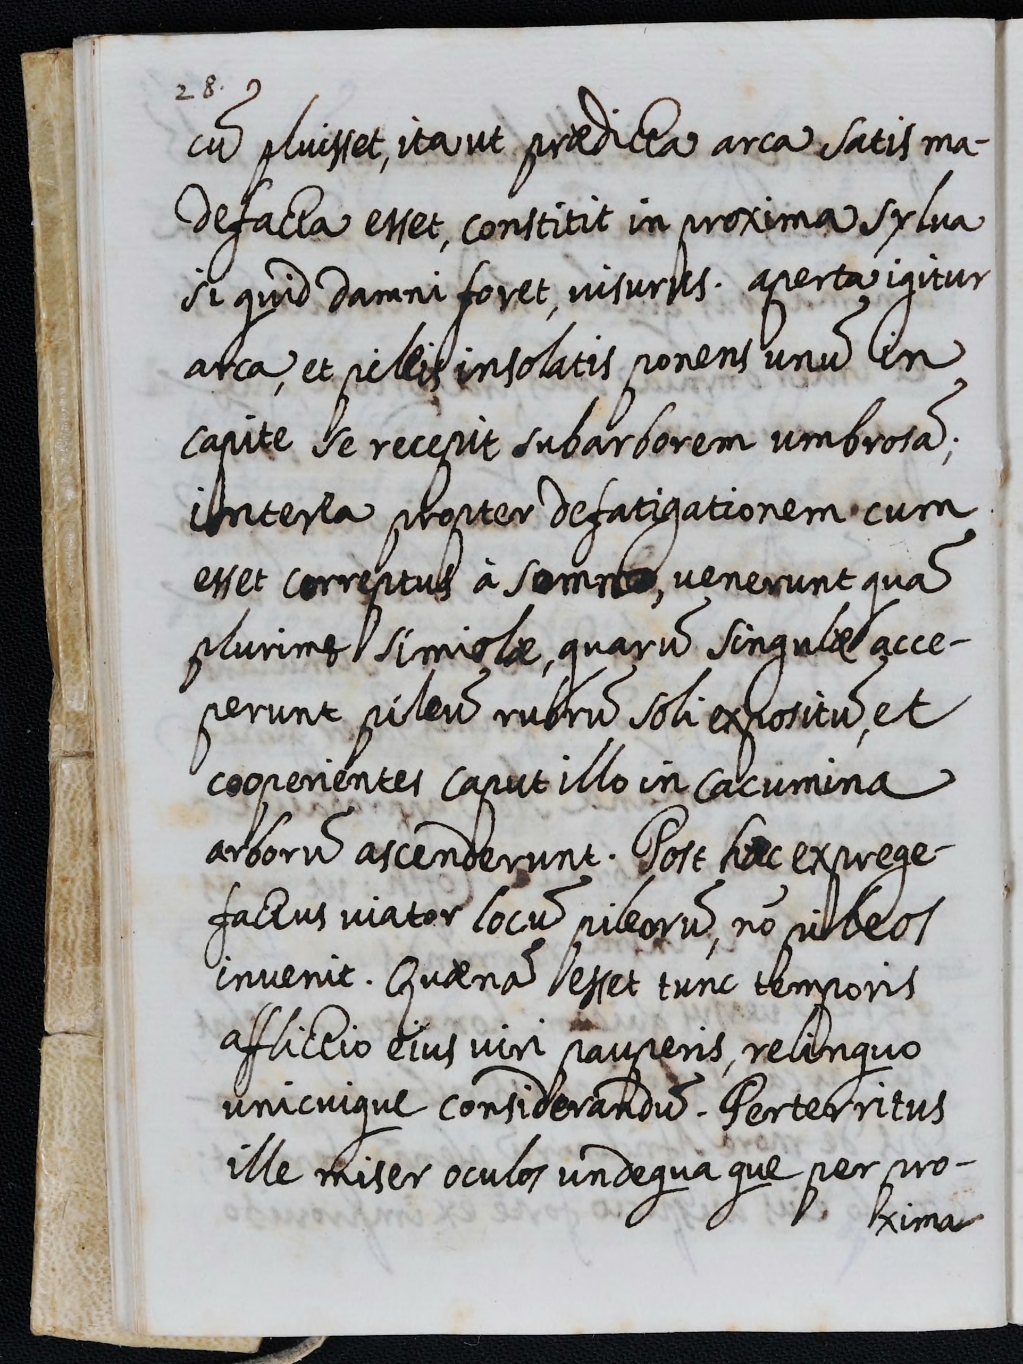 28.
cū pluisset, ita ut prædicta arca satis ma-
defacta esset, constitit in proxima sylva
si quid damni foret, uisurus. aperta igitur
arca, et pileis insolatis ponens unū in
capite se recepit sub arborem umbrosā;
interea propter defatigationem cum
esset correptus à somno, uenerunt quā
plurimę simiolæ, quarū singulæ acce-
perunt pileū rubrū soli expositū, et
cooperientes caput illo in cacumina
arborū ascenderunt. Post hæc exprege-
factus uiator locū pileorū, nō pileos
invenit. Quænā esset tunc temporis
afflictio eius uiri pauperis, relinquo
unicuique considerandū. Perterritus
ille miser oculos undequaque per pro-
xima